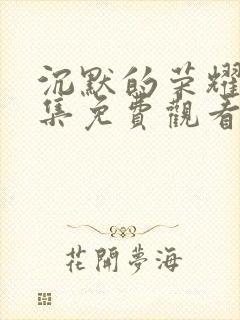 沉默的荣耀
集免費觀看
花開夢海